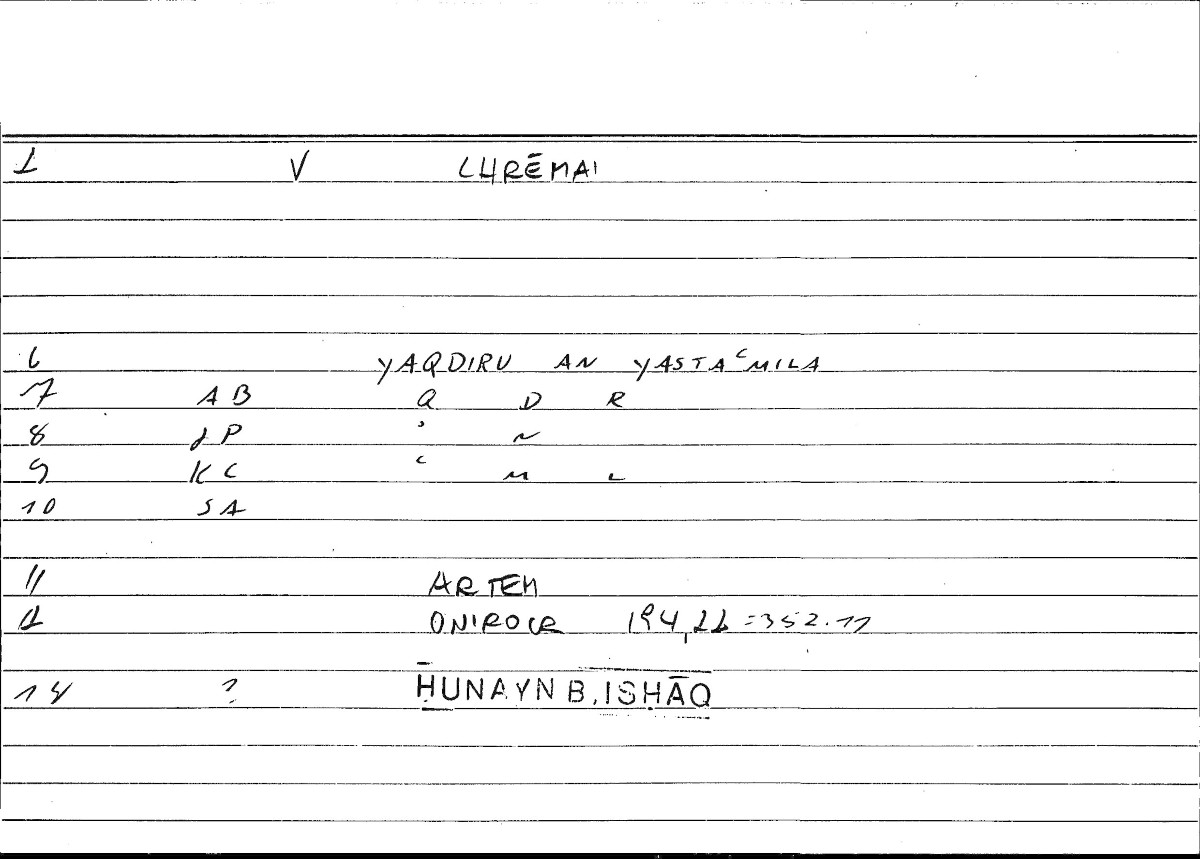 1 V CHRĒMAI
6 YAQDIRU AN YASTAʿMILA
7 AB Q D R
8 JP ʾ N
9 KC ʿ M L
10 SA
11 ARTEM
12 ONIROCR 194,22 = 352.11
14 ? ḤUNAYN B. ISḤĀQ